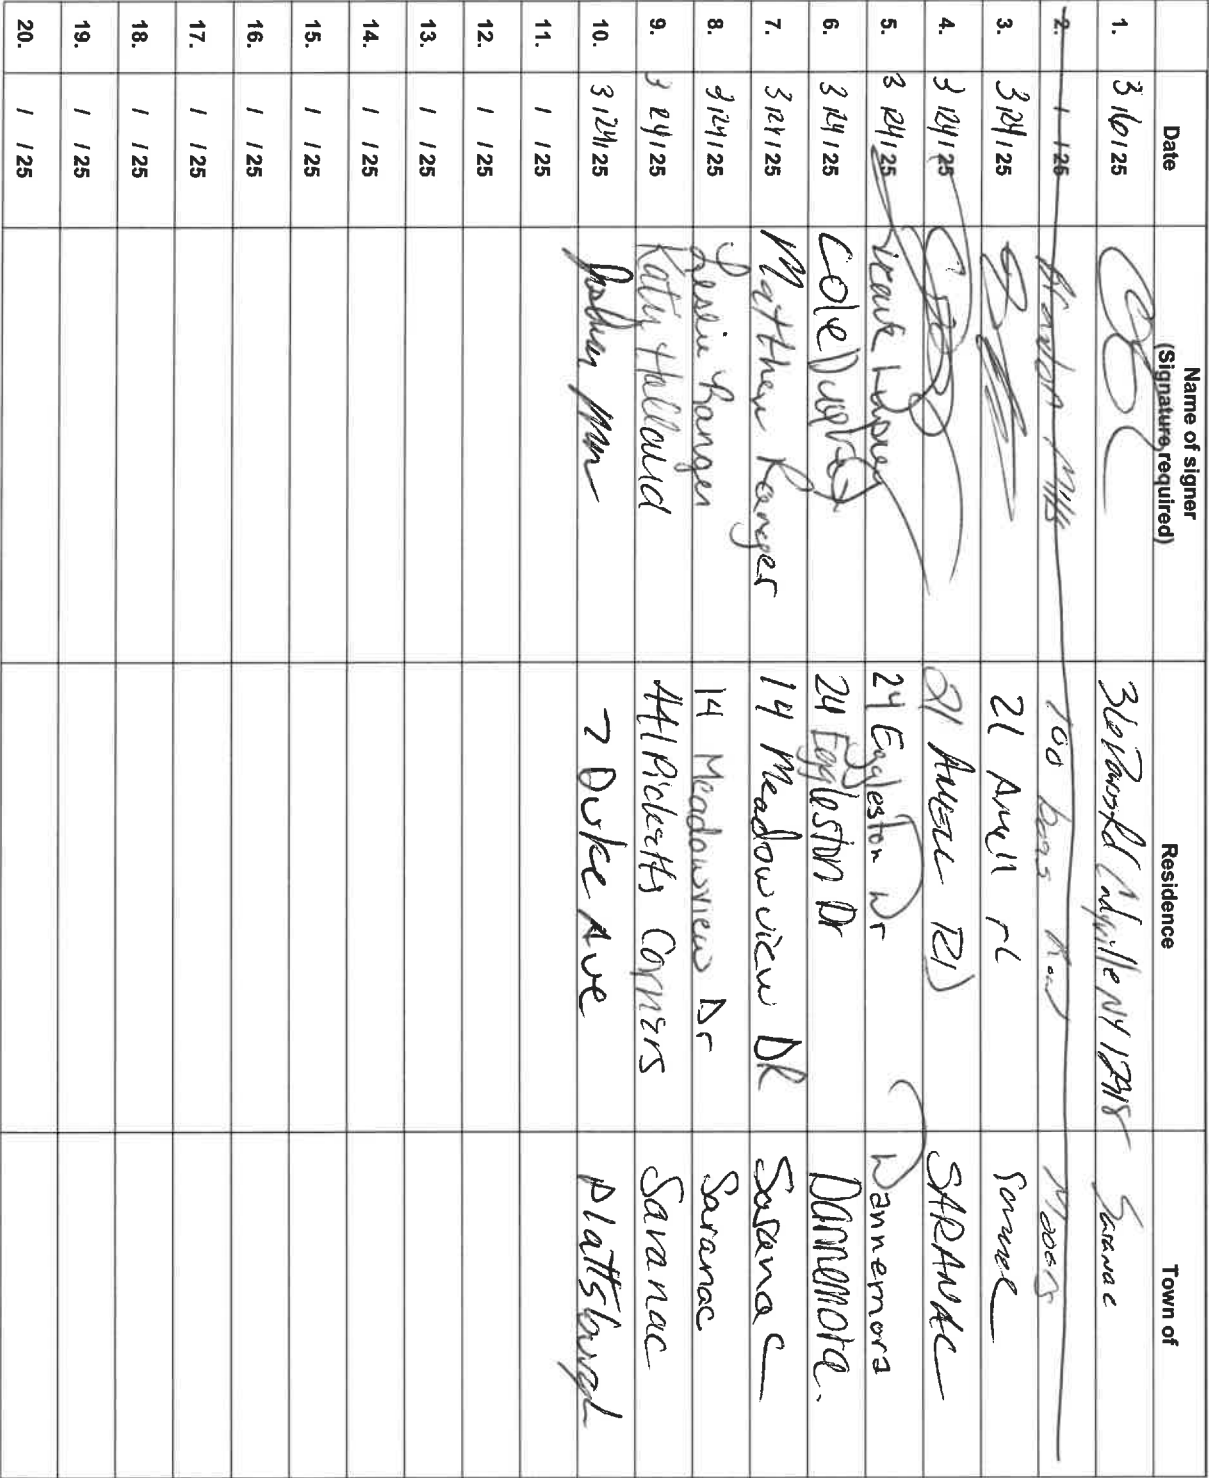 Date Name of signer (Signature required) Residence Town of
1. 3/16/25 Saranac
2. / /25 Brandon Mills Mooers
3. 3/24/25 21
4. 3/24/25 21 SARANAC
5. 3/24/25 24 Eggleston Dr Dannemora
6. 3/24/25 Cole 24 Eggleston Dr Dannemora.
7. 3/24/25 Matthew Ranger 14 Meadowview DR Saranac
8. 3/24/25 Leslie Ranger 14 Meadowview Dr Saranac
9. 3/24/25 Katy 441 Picketts Corners Saranac
10. 3/24/25 7 Duke Ave Plattsburgh
11. / /25
12. / /25
13. / /25
14. / /25
15. / /25
16. / /25
17. / /25
18. / /25
19. / /25
20. / /25